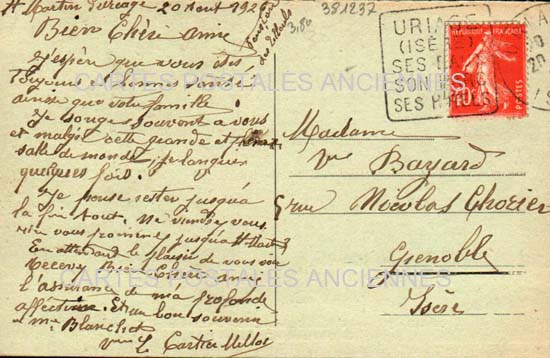 St Martin d'Uriage 20 Aout 1926
Pension
des Tilleuls
3,80
381237
Bien Chère amie
J'espère que vous êtes
Toujours en bonne santé
ainsi que votre famille
Je songe souvent à vous
et malgré cette grande et
salle de monde je languis
quelques fois.
Je pense rester jusqu'à
la fin tout. Ne viendrez vous
vous promener jusqu'à St Martin
En attendant le plaisir de vous voir
Recevez Bien Chère amie
l'assurance de ma profonde
affection. Et un bon souvenir
a me Blanche
Vve L Cartier Millot
URIAGE
(ISÈRE)
SES BAINS
SON
SES
RÉPUBLIQUE FRANÇAISE
10
POSTES
Madame
Vve Bayard
5 rue Nicolas Chorier
Grenoble
Isère
CARTES POSTALES ANCIENNES
CARTES POSTALES ANCIENNES